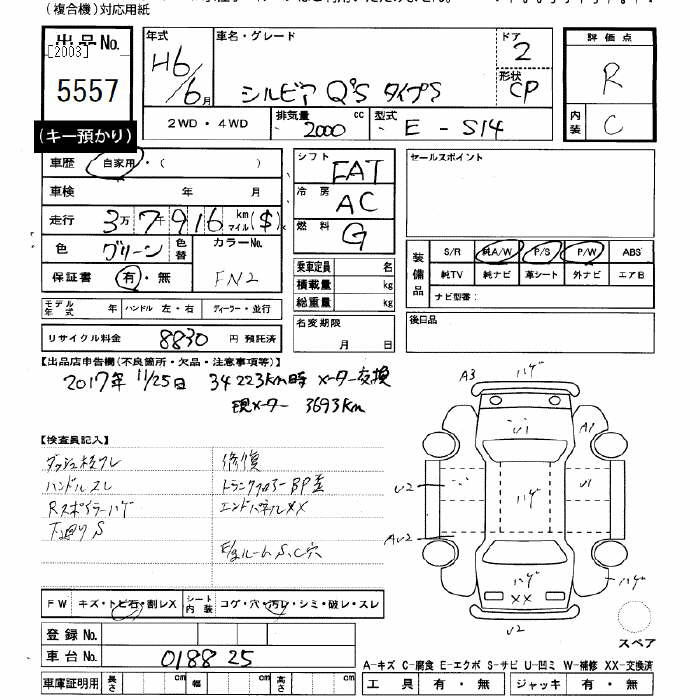 (複合機)対応用紙
出品No.
[2003]
5557
(キー預かり)
年式 車名・グレード ドア 2
H6/6月 シルビア Q'S タイプS 形状 CP
2WD・4WD 排気量 2000 cc 型式 E-S14
評価点
R
内装 C
車歴 自家用・( )
車検 年 月
走行 3万7千916 km マイル($)
色 グリーン 色替 カラーNo.
保証書 有・無 FN2
モデル年式 年 ハンドル 左・右 ディーラー・並行
リサイクル料金 8830 円 預託済
シフト FAT
冷房 AC
燃料 G
乗車定員 名
積載量 kg
総重量 kg
名変期限
月 日
セールスポイント
装備品 S/R 純A/W P/S P/W ABS
純TV 純ナビ 革シート 外ナビ エアB
ナビ型番:
後日品
【出品店申告欄(不良箇所・欠品・注意事項等)】
2017年 11/25日 34223km時 メーター交換
現メーター 3693km
【検査員記入】
ハンドルスレ
Rスポイラーハゲ
下廻りS
修復
トランクフロアーBP歪
エンドパネルXX
ルームS、C穴
FW キズ・トビ石・割レX シート内装 コゲ・穴・汚レ・シミ・破レ・スレ
登録No.
車台No. 0188 25
車庫証明用 長さ 幅 高さ
A3 ハゲ
U1 A1
U2 ハゲ U1
AU2
ハゲ XX ハゲ
U2
スペア
A-キズ C-腐食 E-エクボ S-サビ U-凹ミ W-補修 XX-交換済
工具 有・無 ジャッキ 有・無